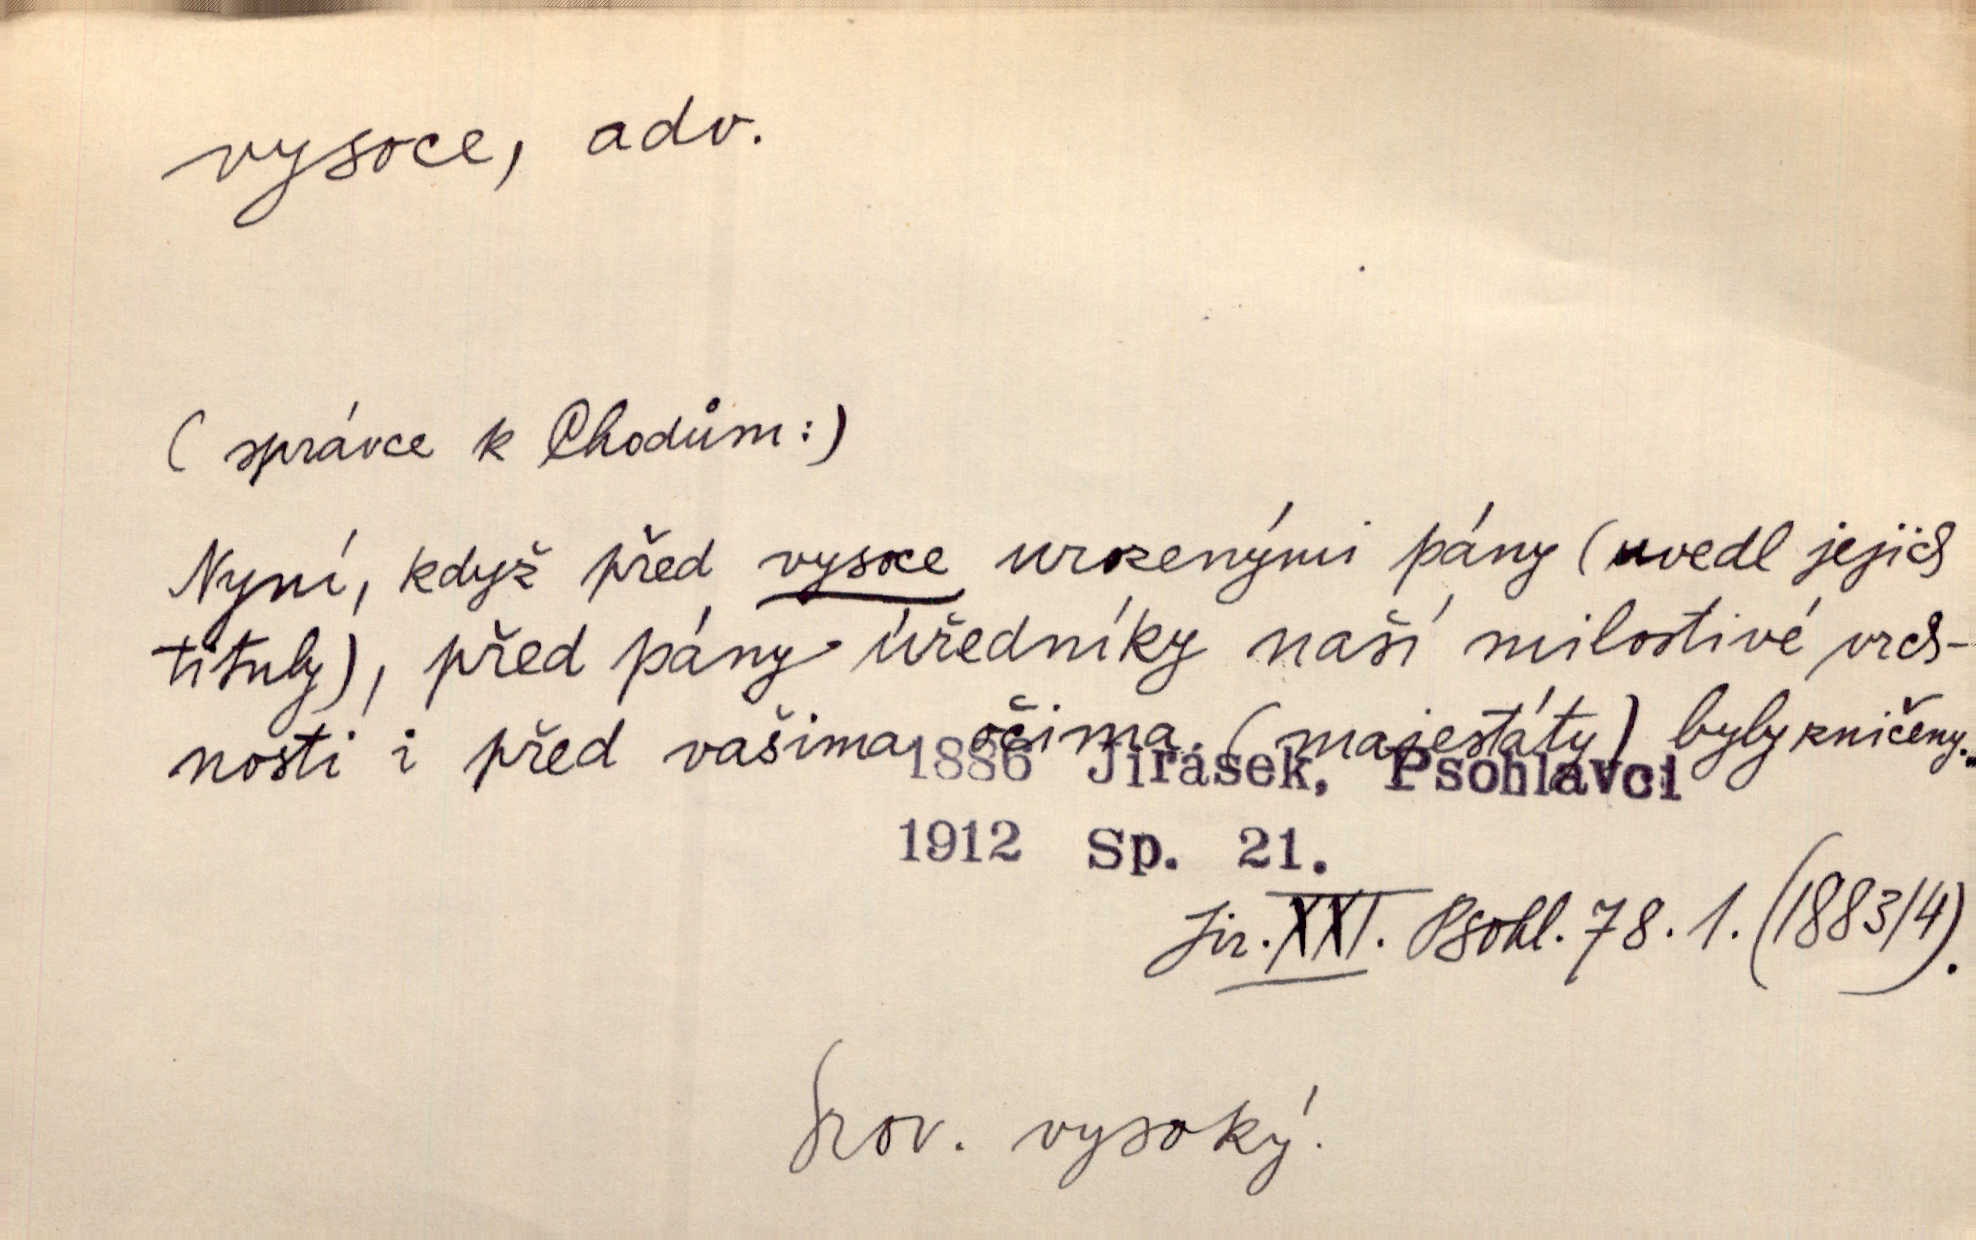 vysoce, adv.
( správce k Chodům:)
Nyní, když před vysoce urozenými pány (uvedl jejich
tituly), před pány úředníky naší milostivé vrch-
nosti i před vašima očima (majestáty) byly zničeny.
1886 Jirásek, Psohlavci
1912 Sp. 21.
Jir. XXI. Psohl. 78. 1. (1883/4).
Srov. vysoký.